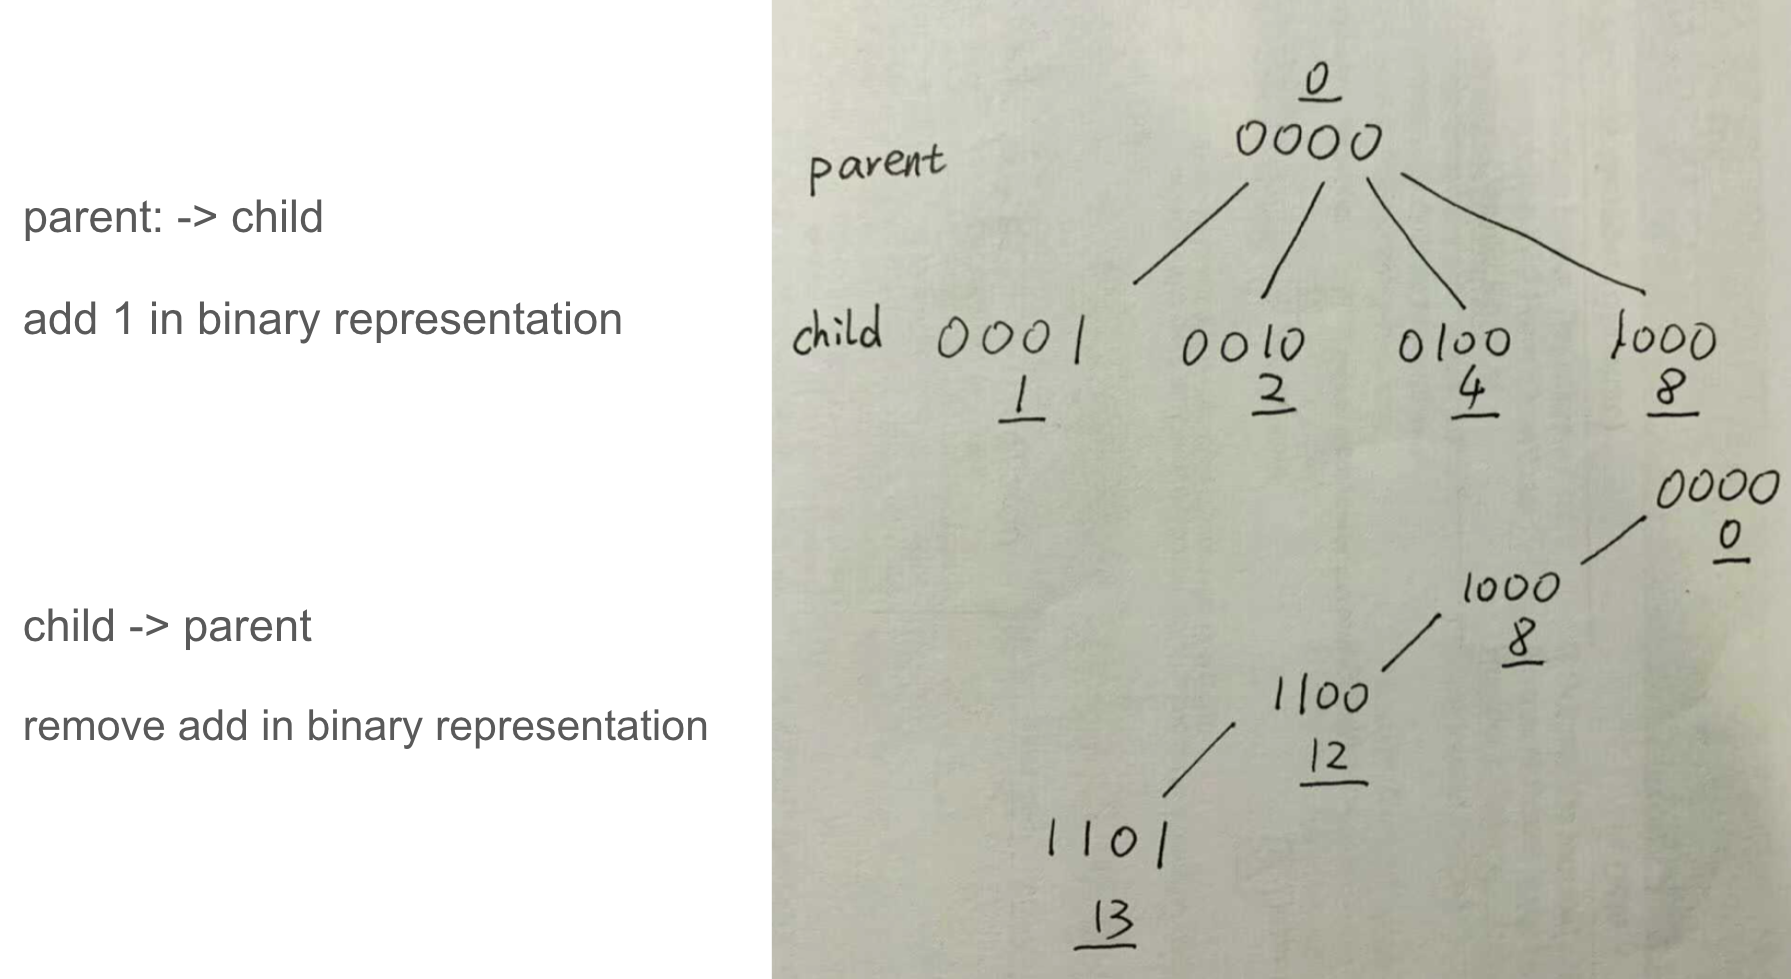 parent: -> child
add 1 in binary representation
child -> parent
remove add in binary representation
0
parent 0000
child 0001 0010 0100 1000
1 2 4 8
0000
0
1000
8
1100
12
1101
13